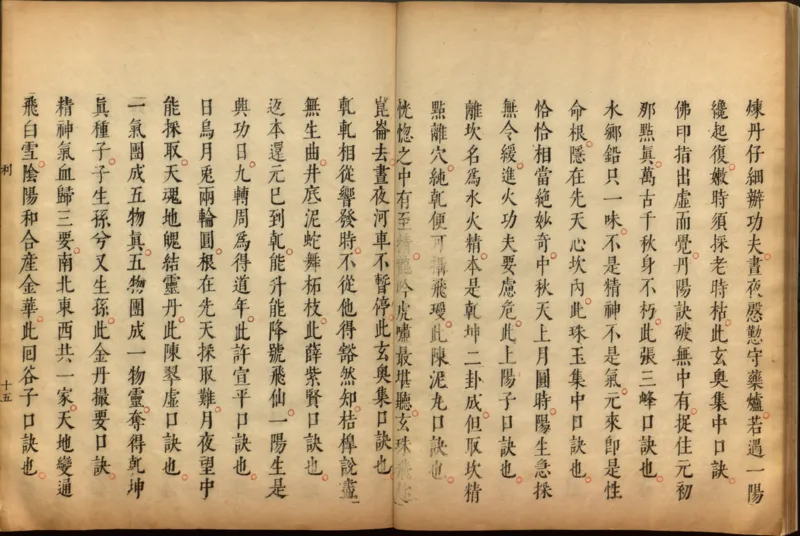 煉丹仔細辦功夫晝夜慇懃守藥爐若遇一陽
纔起復嫩時須採老時枯此玄奧集中口訣
佛印指出虛而覺丹陽訣破無中有捉住元初
那點真萬古千秋身不朽此張三峰口訣也
水鄉鉛只一味不是精神不是氣元來卽是性
命根隱在先天心坎內此珠玉集中口訣也
恰恰相當絕妙奇中秋天上月圓時陽生急採
無令緩進火功夫要慮危此上陽子口訣也
離坎名為水火精本是乾坤二卦成但取坎精
點離穴純乾便可稱飛瓊此陳泥丸口訣也
恍惚之中有至精龍吟虎嘯最堪聽玄珠飛
崑崙去晝夜河車不暫停此玄奧集口訣也
乾乾相從響發時不從他得豁然知桔槔說盡
無生曲井底泥蛇舞柘枝此薛紫賢口訣也
返本還元已到乾能升能降號飛仙一陽生是
興功日九轉周為得道年此許宣平口訣也
日烏月兎兩輪圓根在先天採取難月夜望中
能採取天魂地魄結靈丹此陳翠虛口訣也
一氣團成五物真五物團成一物靈奪得乾坤
真種子子生孫兮又生孫此金丹撮要口訣
精神氣血歸三要南北東西共一家天地變通
飛白雪陰陽和合產金華此回谷子口訣也
利
十五